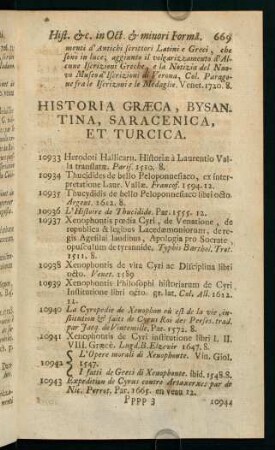 Hist. &c. in Oct. & minori Formâ. 669
menti d' Antichi scrittori Latini e Greci, che
sono in luce; aggiunto il vulgarizzamento d'Al-
cune Iscrizioni Greche, e la Notizia del Nuo-
vo Museo d'Iscrizioni di Verona, Col Parago-
ne fra le Iscrizioni e le Medaglie. Venet. 1720. 8.
HISTORIA GRÆCA, BYSAN-
TINA, SARACENICA,
ET TURCICA.
10933 Herodoti Hallicarn. Historiæ à Laurentio Val-
la translatæ. Paris. 1510. 8.
10934 Thucydidis de bello Peloponnesiaco, ex inter-
pretatione Laur. Vallæ. Francof. 1594. 12.
10935 Thucydidis de bello Peloponnesiaco libri octo.
Argent. 1612. 8.
10936 L'Histoire de Thucidide. Par. 1555. 12.
10937 Xenophontis pædia Cyri, de Venatione, de
republica & legibus Lacedæmoniorum, de re-
gis Agesilai laudibus, Apologia pro Socrate,
opusculum de tyrannide. Typis Barthol. Trot.
1511. 8.
10938 Xenophontis de vita Cyri ac Disciplina libri
octo. Venet.
10939 Xenophontis Philosophi historiarum de Cyri
Institutione libri octo. gr. lat. Col. All. 1612.
12.
10940 La Cyropedie de Xenophon où est de la vie, in-
stitution & faits de Cyrus Roi des Perses. trad.
par Jacq. de Vintemille. Par. 1572. 8.
10941 Xenophontis de Cyri institutione libri I. II.
VIII. Græcè. Lugd. B. Elzevir 1647. 8.
10942 L'Opere morali di Xenophonte. Vin. Giol.
1547.
I fatti de Greci di Xenophonte. ibid. 1548. 8.
10943 Expedition de Cyrus contre Artaxerxes par de
Nic. Perrot. Par. 1665. en veau 12.
PPPP 3 10944